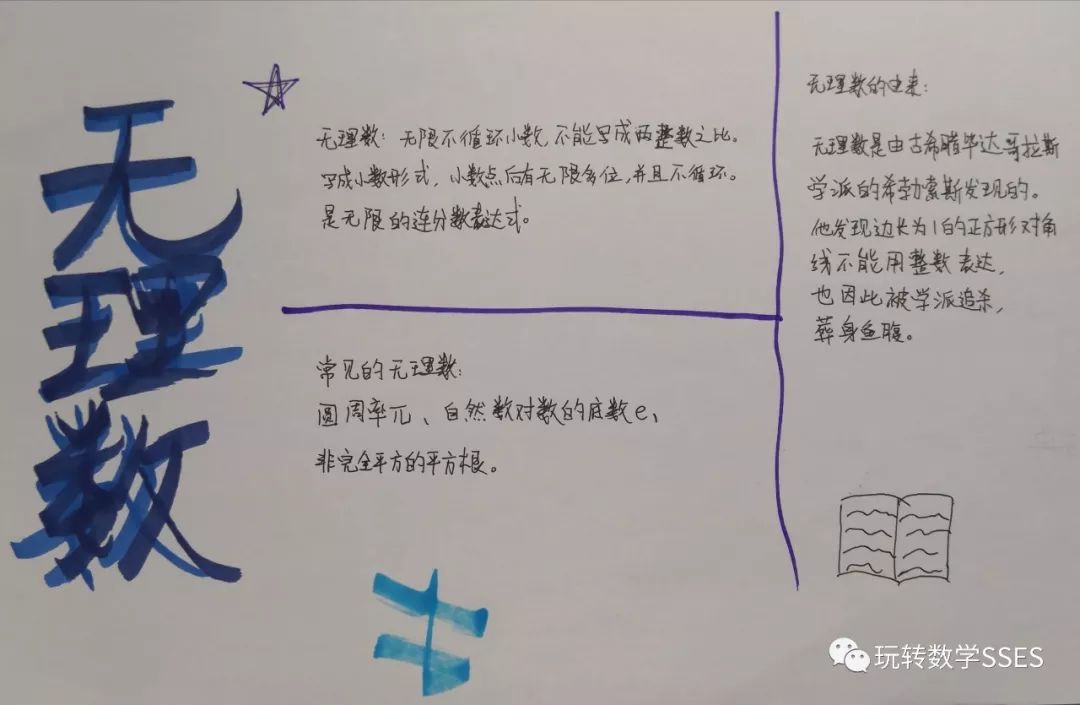 无理数
无理数：无限不循环小数，不能写成两整数之比。
写成小数形式，小数点后有无限多位，并且不循环。
是无限的连分数表达式。
常见的无理数：
圆周率π、自然数对数的底数e、
非完全平方的平方根。
无理数的由来：
无理数是由古希腊毕达哥拉斯
学派的希勃索斯发现的。
他发现边长为1的正方形对角
线不能用整数表达，
也因此被学派追杀，
葬身鱼腹。
玩转数学SSES